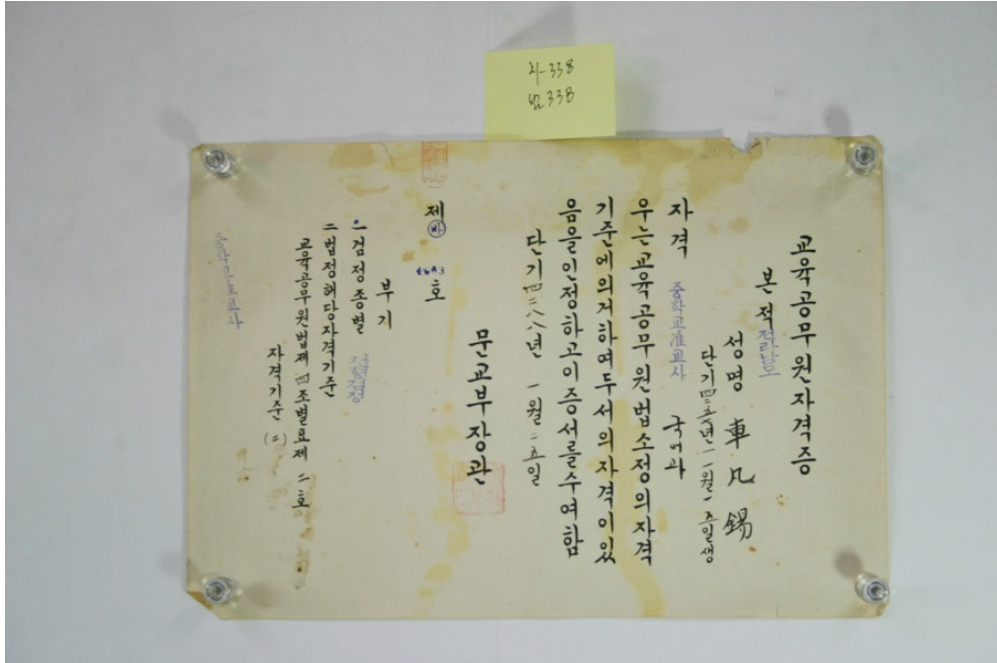 차-338
범338
교육공무원자격증
본적 전남도
성명 車凡錫
단기四二五七년一一월一五일생
자격 중학교准교사 국어과
우는교육공무원법소정의자격
기준에의거하여두서의자격이있
음을인정하고이증서를수여함
단기四二八八년 一월二五일
문교부장관
제 바 호
부기
一 검정종별
二 법정해당자격기준
교육공무원법제四조별표제二호
자격기준(二)